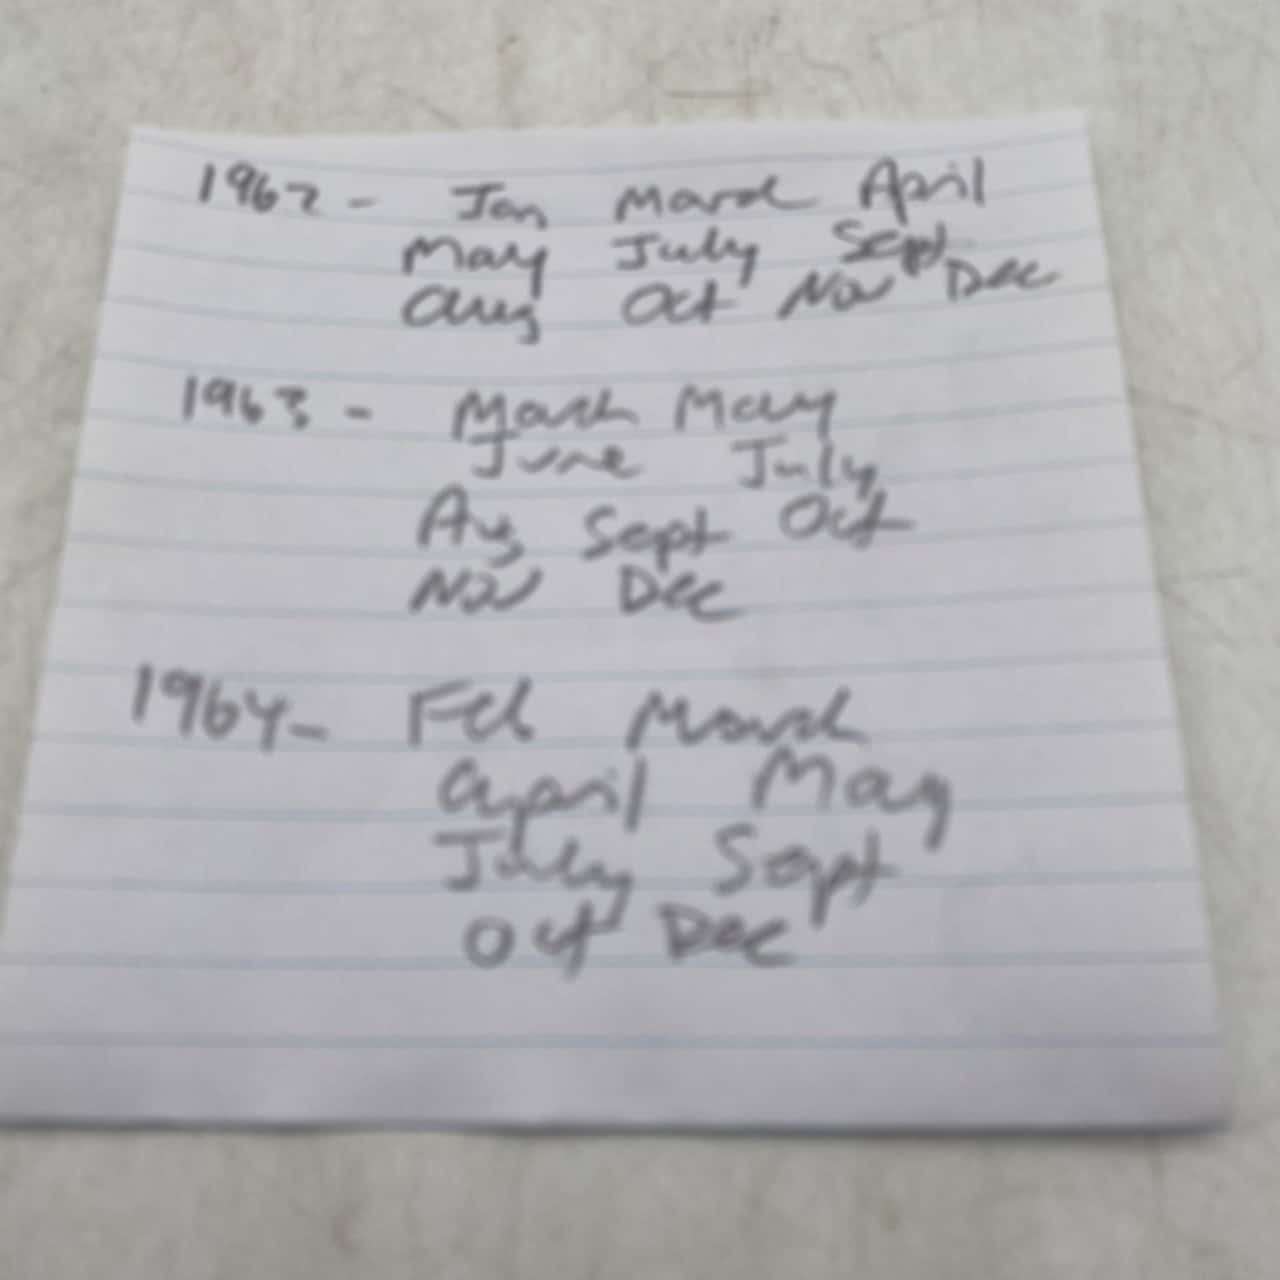 1962 - Jan March April
May July Sept
Aug Oct Nov Dec
1963 - March May
June July
Aug Sept Oct
Nov Dec
1964 - Feb March
April May
July Sept
Oct Dec